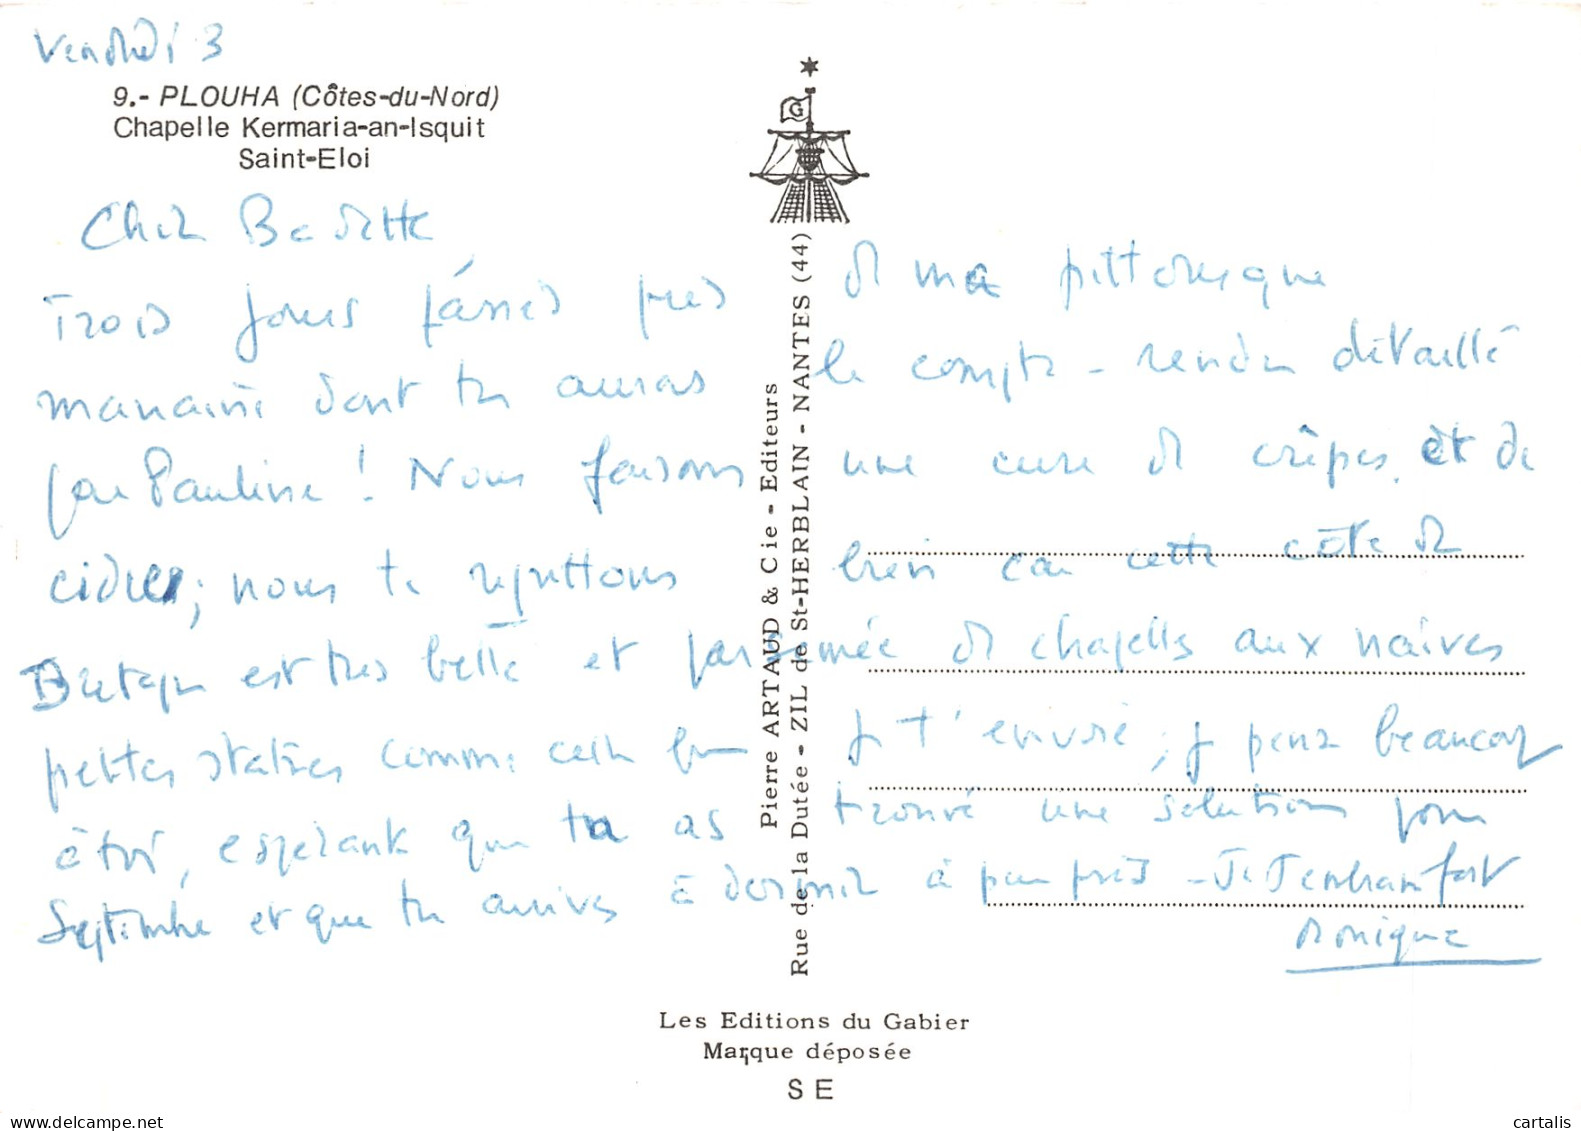 Vendredi 3
9.- PLOUHA (Côtes-du-Nord)
Chapelle Kermaria-an-Isquit
Saint-Eloi
Chère Bedette
Trois jours passés près de ma pittoresque
marraine dont tu auras le compte-rendu détaillé
par Pauline ! Nous faisons une cure de crêpes et de
cidre ; nous te regrettons bien car cette côte de
Bretagne est très belle et parsemée de chapelles aux naïves
petites statues comme celle que je t'envoie ; je pense beaucoup
à toi, espérant que tu as trouvé une solution pour
Septembre et que tu arrives à dormir à peu près - Je t'embrasse fort
Monique
Pierre ARTAUD & Cie - Editeurs
Rue de la Dutée - ZIL de St-HERBLAIN - NANTES (44)
G
Les Editions du Gabier
Marque déposée
S E
cartalis
www.delcampe.net